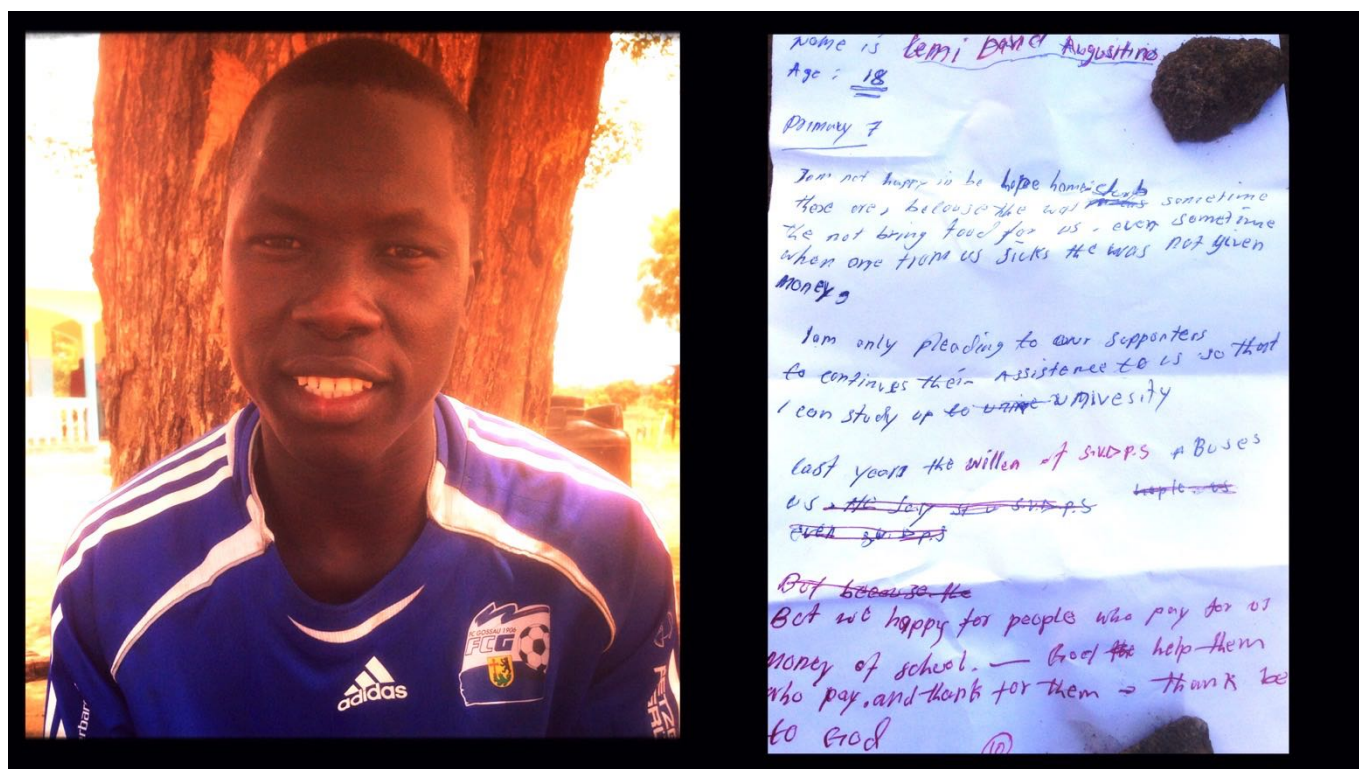 FC GOSSAU 1908
FCG
adidas
Name is Lemi David Augustino
Age : 18
Primary 7
Iam not happy in be hope home
these are, because the was sometime
the not bring food for us. even sometime
when one from us sicks the was not given
money,
Iam only pleading to our supporters
to continues their Assistence to us so that
I can study up to univesity
last years the willen of S.V.D.P.S aBuses
us
But because the
But we happy for people who pay for us
money of school. — God help them
who pay, and thank for them → thank be
to God
10